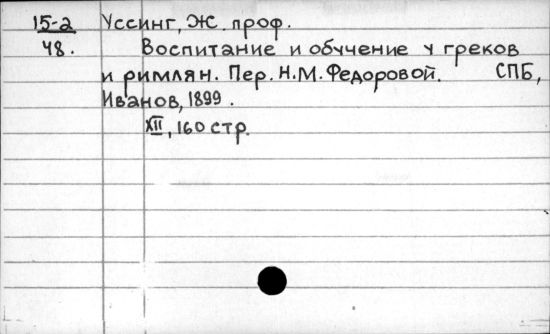 15-2 Уссинг, Ж. проф.
48. Воспитание и обучение у греков
и римлян. Пер. Н.М. Федоровой. СПБ,
Иванов, 1899.
XII, 160 стр.